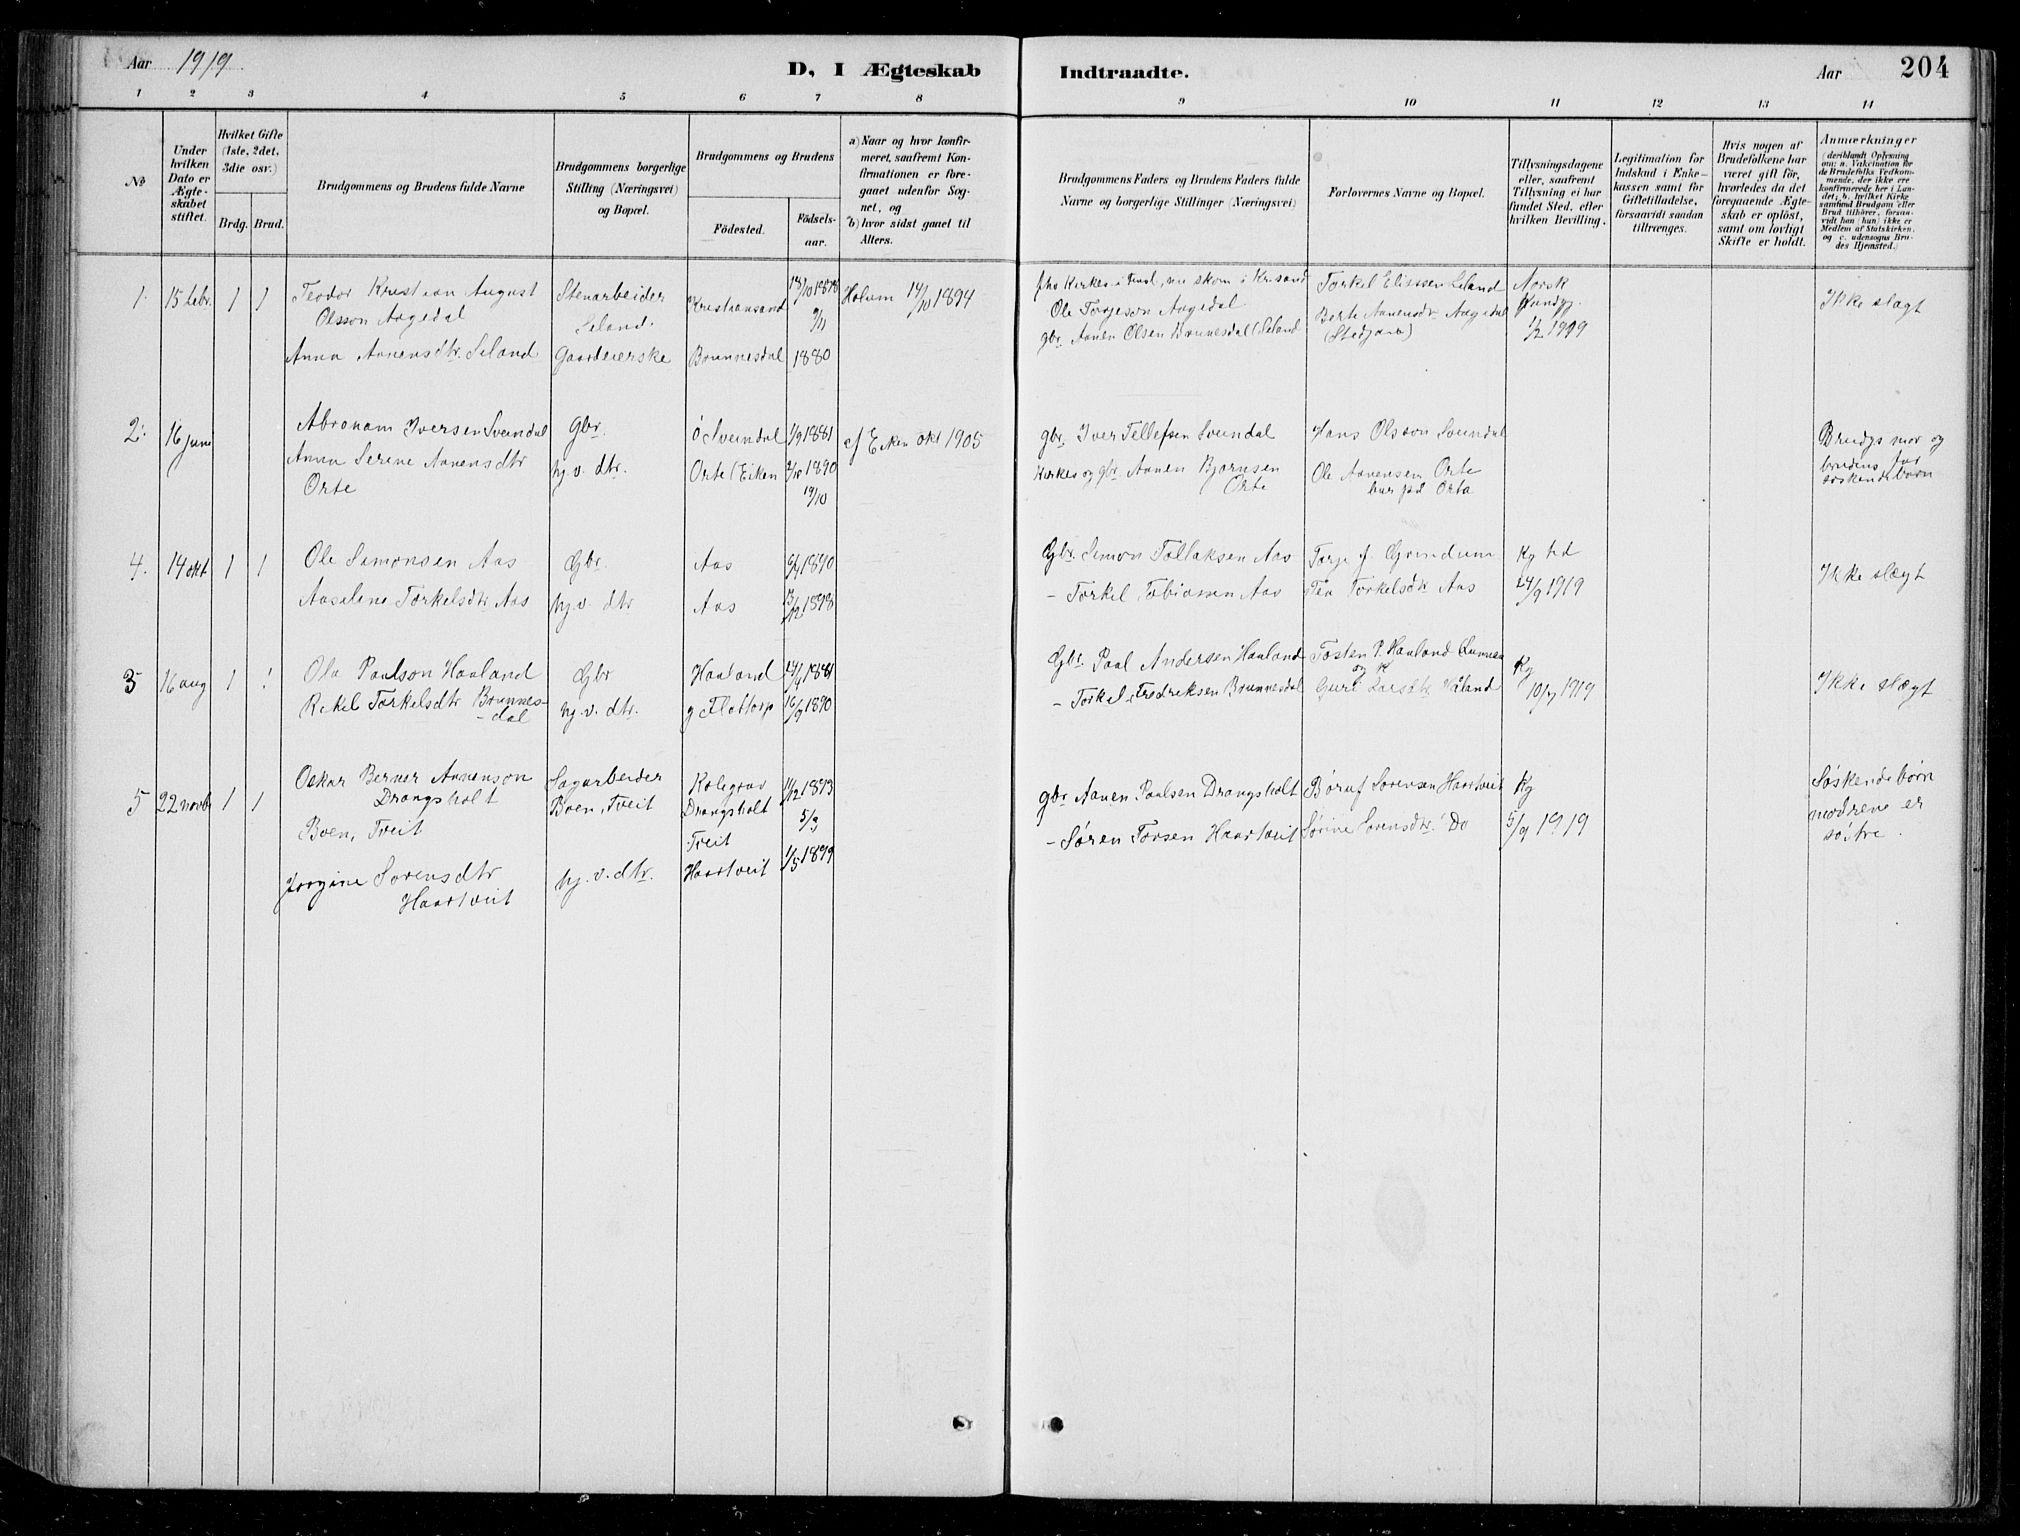 Aar 1919
D, I Ægteskab Indtraadte.
Aar
204
1 2 3 4 5 6 7 8 9 10 11 12 13 14
No
Under hvilken Dato er Ægteskabet stiftet.
Hvilket Gifte (1ste, 2det, 3die osv.)
Brdg. Brud.
Brudgommens og Brudens fulde Navne
Brudgommens borgerlige Stilling (Næringsvei) og Bopæl.
Brudgommens og Brudens
Födested.
Födsels-aar.
a) Naar og hvor konfirmeret, saafremt Konfirmationen er foregaaet udenfor Sognet, og
b) hvor sidst gaaet til Alters.
Brudgommens Faders og Brudens Faders fulde Navne og borgerlige Stillinger (Næringsvei)
Forlovernes Navne og Bopæl.
Tillysningsdagene eller, saafremt Tillysning ei har fundet Sted, efter hvilken Bevilling.
Legitimation for Indskud i Enkekassen samt for Giftetilladelse, forsaavidt saadan tiltrænges.
Hvis nogen af Brudefolkene har været gift för, hvorledes da det foregaaende Ægteskab er oplöst, samt om lovligt Skifte er holdt.
Anmærkninger
(deriblandt Oplysning om: a. Vakcination for de Brudefolks Vedkommende, der ikke ere konfirmerede her i Landet; b. hvilket Kirkesamfund Brudgom eller Brud tilhører, forsaavidt han (hun) ikke er Medlem af Statskirken, og c. udensogns Brudes Hjemsted.)
1. 15 febr. 1 1
Teodor Kristian August
Olsson Aagedal
Anna Aanensdtr. Seland
Stenarbeider
Seland.
Gaardeierske
Kristiansand
Brunnesdal
14/10 1878
9/11
1880
Holum 14/10 1894
Ole Torjeson Aagedal
gbr. Aanen Olsen Brunnesdal (Seland
Torkel Elissen Seland
Berte Aanensdr. Aagedal
Norsk
1/2 1919
Ikke slægt
2. 16 juni
Abraham Iversen Sveindal
Anna Serine Aanensdtr
Orte
gbr.
hj. v. dtr.
Ö Sveindal
Orte (Eiken
1/9 1881
2/10 1890
19/10
Eiken okt 1905
gbr. Iver Tellefsen Sveindal
Kirkes og gbr Aanen Bjørnsen
Orte
Hans Olsson Sveindal
Ole Aanensen Orte
bur på Orte
Brudgs mor og
brudens far
søskendebarn
4. 14 okt 1 1
Ole Simonsen Aas
Aaselene Torkelsdtr Aas
Gbr.
hj. v. dtr
Aas
Aas
6/4 1890
13/12 1898
Gbr. Simon Tollaksen Aas
- Torkel Tobiassen Aas
Torje J. Grindum
Tea Torkelsdtr Aas
Kg
24/9 1919
Ikke slægt
3 16 aug 1 1
Ola Paulson Haaland
Rakel Torkelsdtr Brunnes-
-dal
Gbr
hj. v. dtr.
Haaland
g Flottorp
24/4 1881
16/9 1890
Gbr. Paal Andersen Haaland
- Torkel Fredriksen Brunnesdal
Tosten P. Haaland
og
Guri Larsdtr Håland
Kg
10/7 1919
Ikke slægt
5 22 novb 1 1
Oskar Berner Aanenson
Drangsholt
Boen, Tveit
Jorgine Sorensdtr
Haartveit
Sagarbeider
Boen, Tveit
hj. v. dtr.
Drangsholt
Tveit
Haartveit
11/12 1893
5/3
1/5 1899
gbr Aanen Paulsen Drangsholt
- Søren Torsen Haartveit
Børuf Sorensen Haartveit
Sørine Sorensdtr. Do
Kg
5/9 1919
Søskendebørn
mødrene er
søstre.